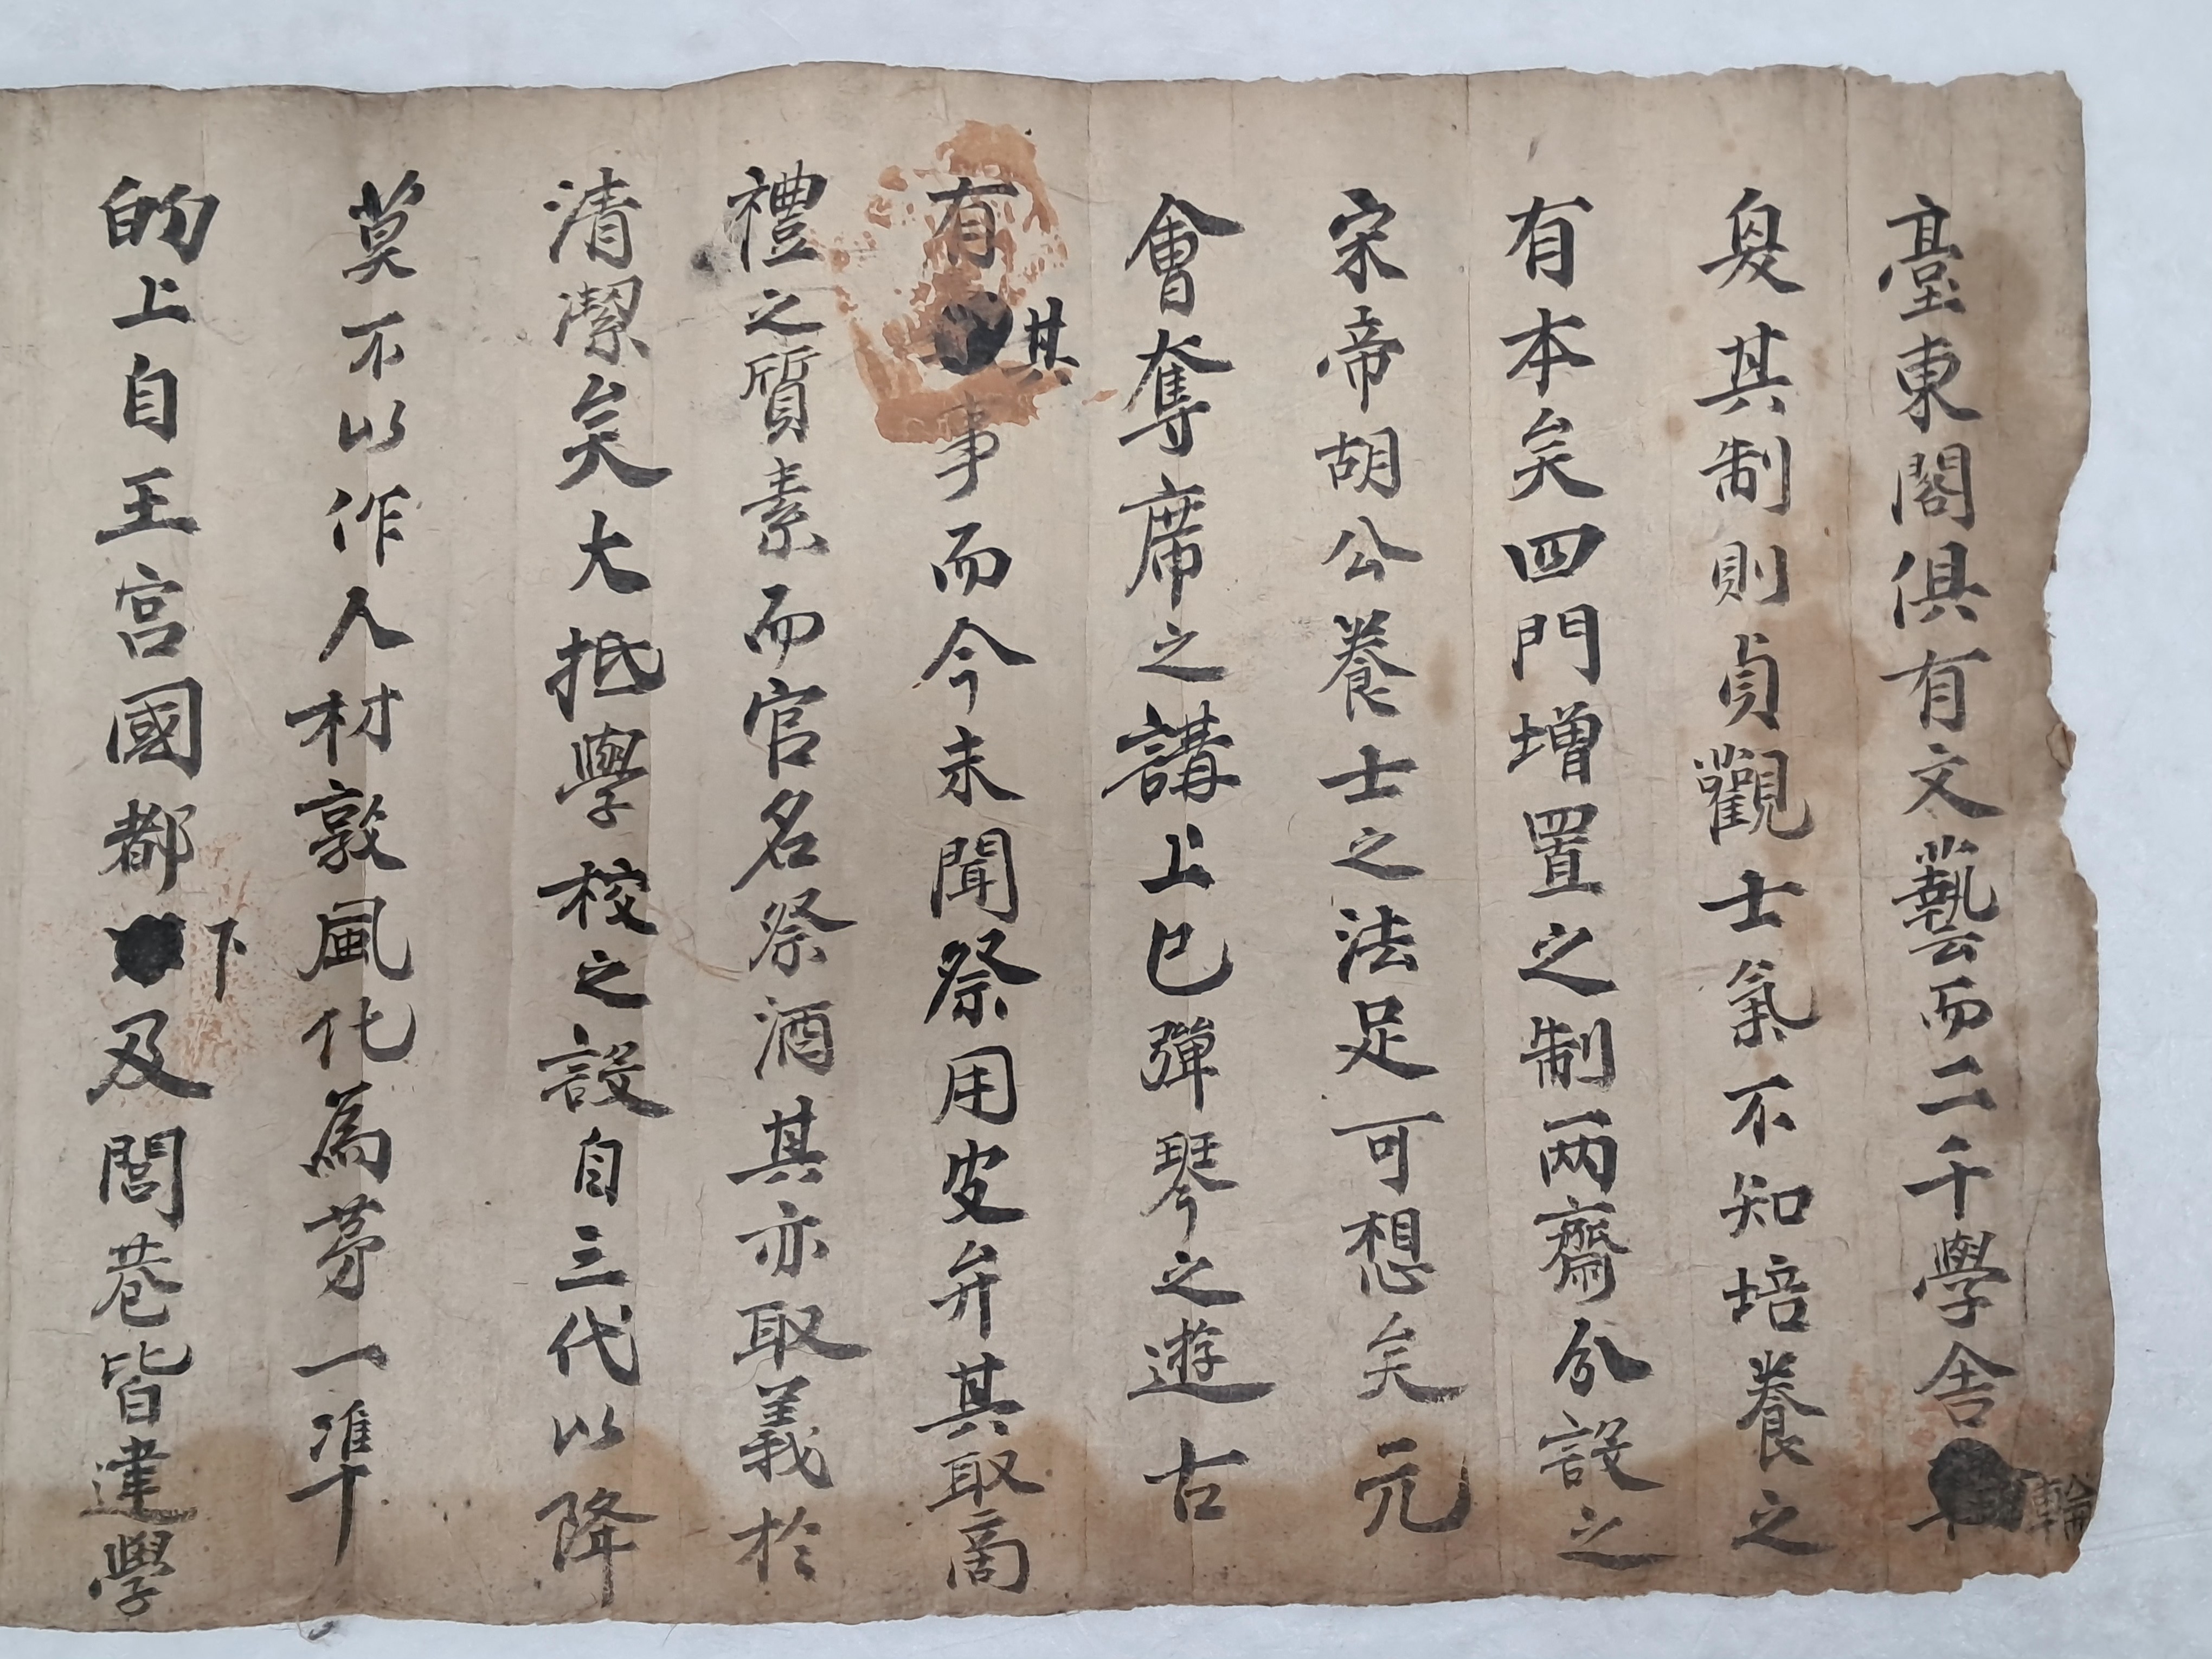 臺東閣俱有文藝而二千學舍輪
奐其制則貞觀士氣不知培養之
有本矣四門增置之制兩齋分設之
宋帝胡公養士之法足可想矣元
會奪席之講上巳彈琴之遊古
有其事而今未聞祭用皮弁其取商
禮之質素而官名祭酒其亦取義於
清潔矣大抵學校之設自三代以降
莫不以作人材敦風化爲茅一準
的上自王宮國都下及閭巷皆建學